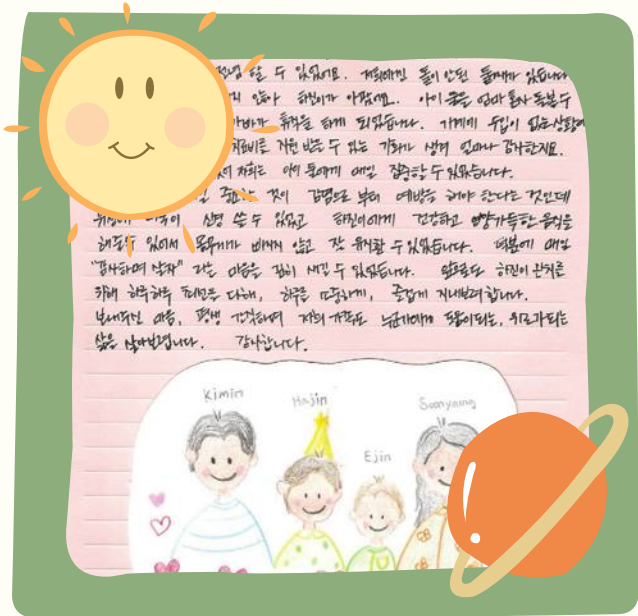 수 있었어요. 저희에겐 돌이 안된 둘째가 있습니다
않아 하진이가 아팠어요. 아이 둘을 엄마 혼자 돌볼 수
휴직을 하게 되었습니다. 가계에 수입이 없는 상황에
치료비를 지원 받을 수 있는 기회가 생겨 얼마나 감사한지요.
저희는 아이 둘에게 매일 집중할 수 있었습니다.
중요한 것이 감염으로 부터 예방을 해야 한다는 것인데
위생에 더욱이 신경 쓸 수 있었고 하진이에게 건강하고 영양가득한 음식을
해줄수 있어서 몸무게가 빠지지 않고 잘 유지할 수 있었습니다. 덕분에 매일
"감사하며 살자" 라는 마음을 깊이 새길 수 있었습니다. 앞으로도 하진이 완치를
위해 하루하루 최선을 다해, 하루를 따뜻하게, 즐겁게 지내보려합니다.
보내주신 마음, 평생 간직하며 저희 가족도 누군가에게 도움이되는, 위로가되는
삶을 살아보렵니다. 감사합니다.
Kimin Hajin Ejin Soonyoung